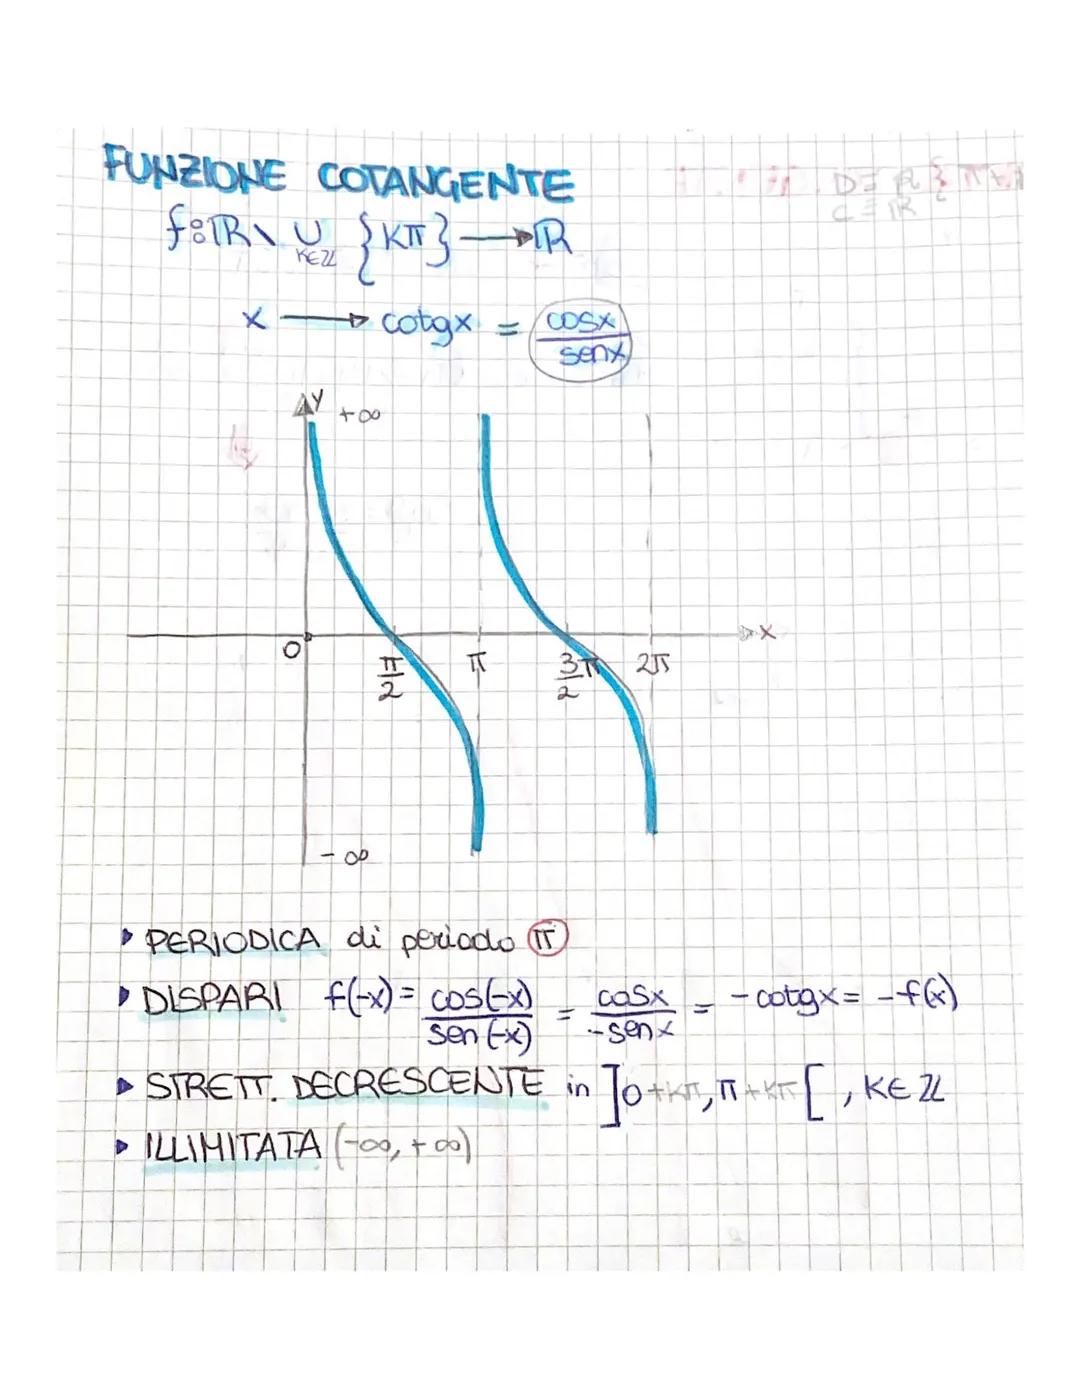 FUNZIONE COTANGENTE
f: ℝ \ ∪ {Kπ} → ℝ
K∈ℤ
x → cotgx = cosx / senx
D ≡ ℝ
C ≡ ℝ
y +∞
0 π/2 π 3π/2 2π x
-∞
PERIODICA di periodo π
DISPARI f(-x) = cos(-x) / sen(-x) = cosx / -senx = -cotgx = -f(x)
STRETT. DECRESCENTE in ]0+Kπ, π+Kπ[, K∈ℤ
ILLIMITATA (-∞, +∞)